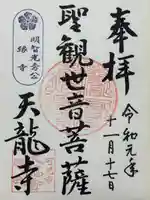 奉拝
令和元年
十一月十七日
聖観世音菩薩
明智光秀公
縁寺
天龍寺